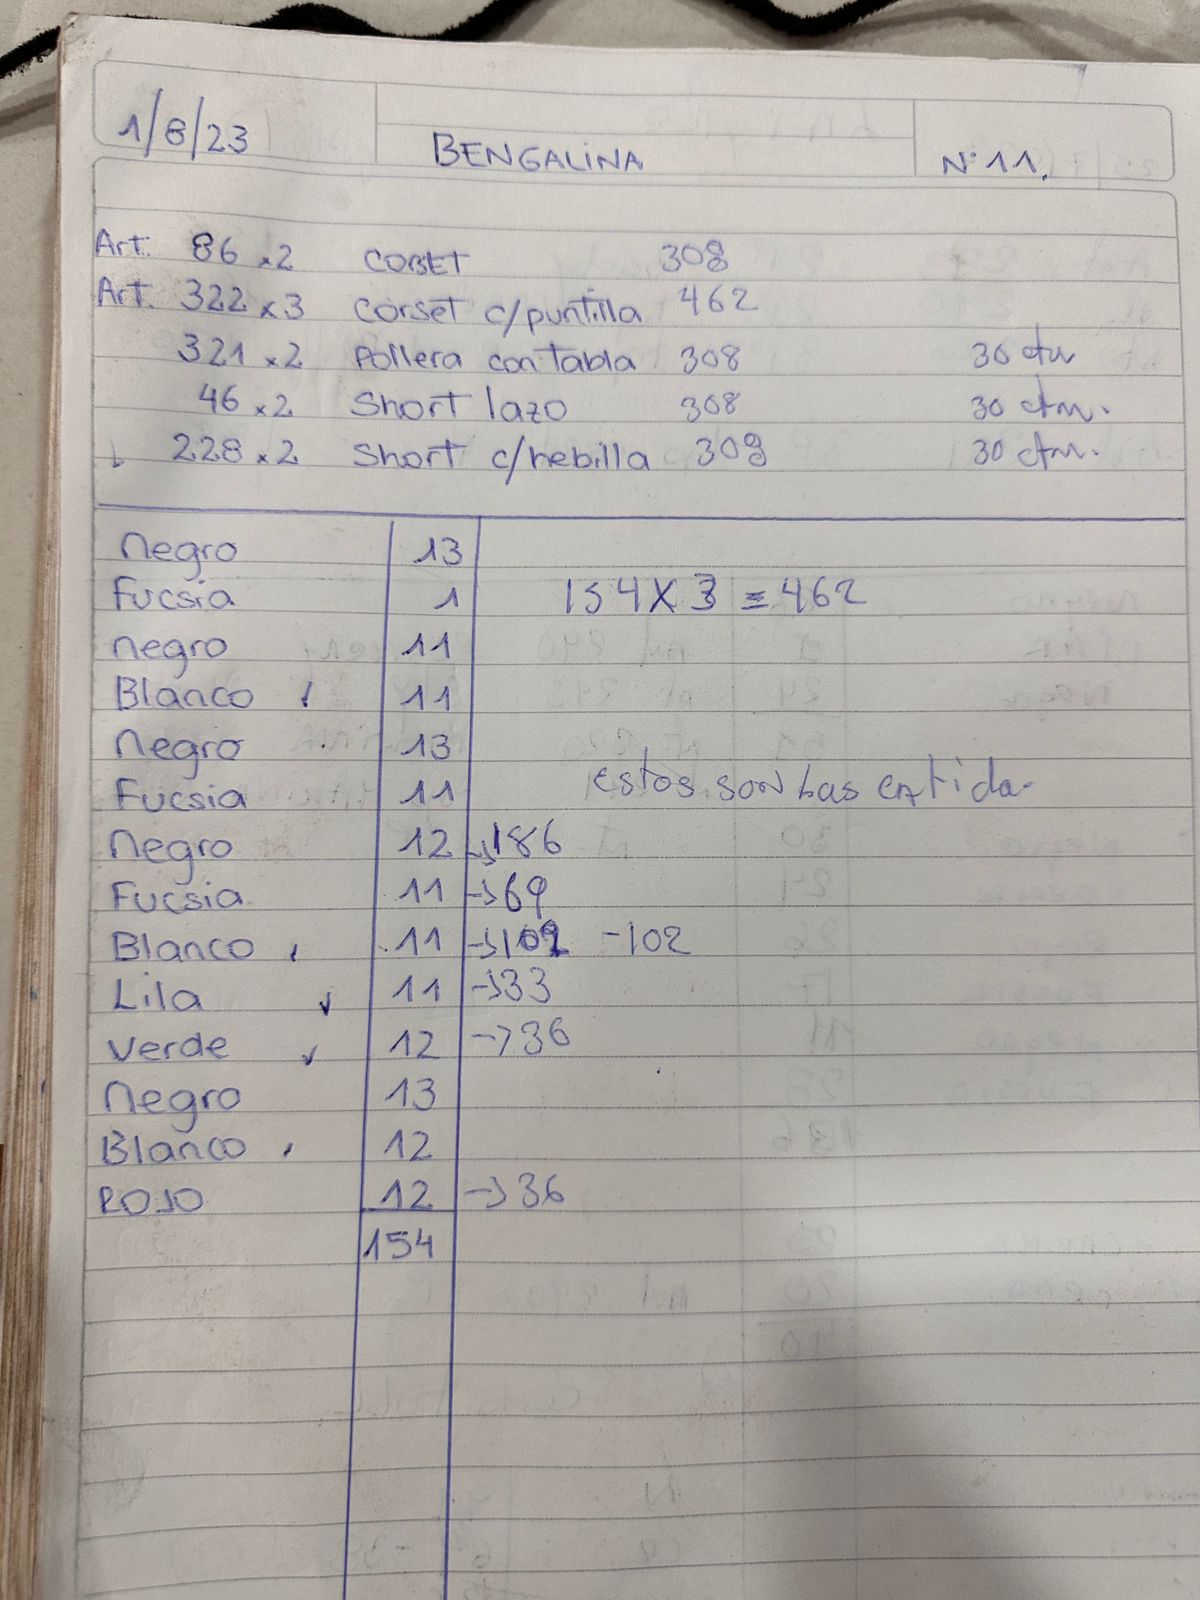 1/8/23 BENGALINA Nº 11.
Art. 86 x2 COBET 308
Art. 322 x3 Corset c/puntilla 462
321 x2 Pollera con Tabla 308 30 ctm
46 x2 Short lazo 308 30 ctm.
↓ 228 x2 Short c/hebilla 308 30 ctm.
Negro 13
Fucsia 1 154 X 3 = 462
Negro 11
Blanco 11
Negro 13
Fucsia 11 estos son Las
Negro 12 → 186
Fucsia 11 → 69
Blanco 11 → 102 -102
Lila ✓ 11 → 33
Verde ✓ 12 → 36
Negro 13
Blanco 12
ROJO 12 → 36
154